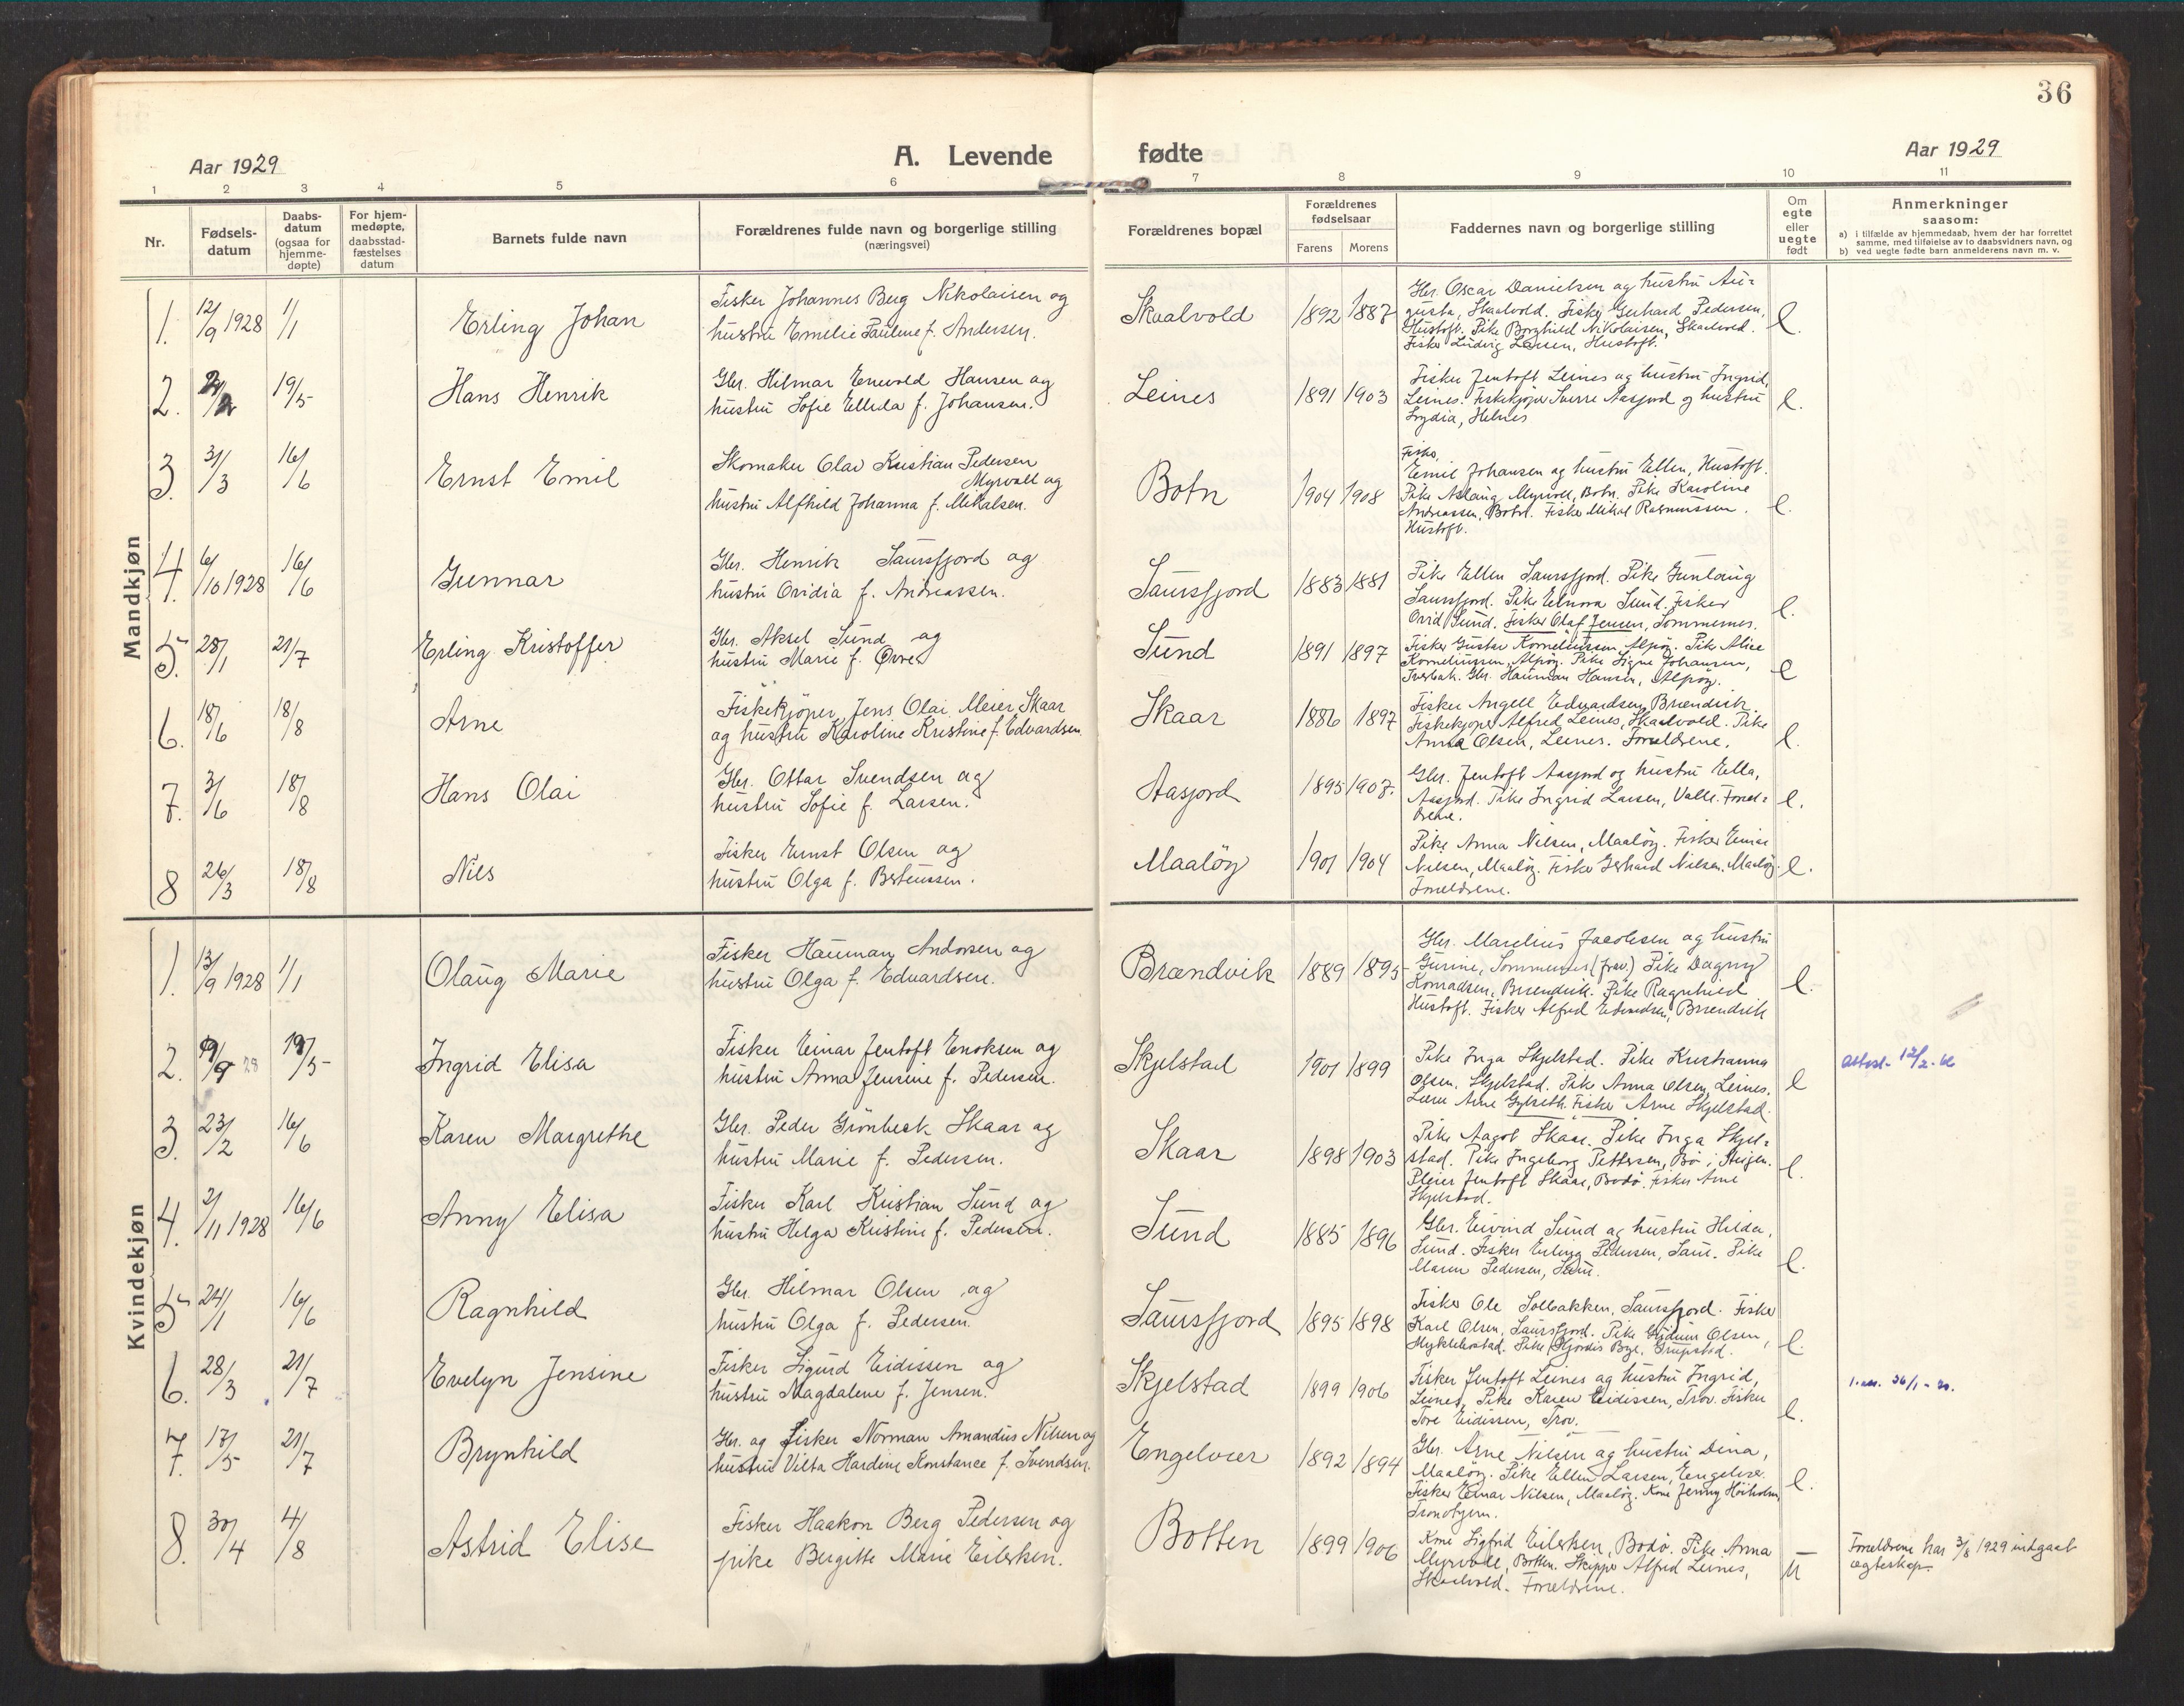 36
Aar 1929
A. Levende fødte
Aar 1929
1 2 3 4 5 6 7 8 9 10 11
Nr.
Fødsels-
datum
Daabs-
datum
(ogsaa for
hjemme-
døpte)
For hjem-
medøpte,
daabsstad-
fæstelses
datum
Barnets fulde navn
Forældrenes fulde navn og borgerlige stilling
(næringsvei)
Forældrenes bopæl
Forældrenes
fødselsaar
Farens Morens
Faddernes navn og borgerlige stilling
Om
egte
eller
uegte
født
Anmerkninger
saasom:
a) i tilfælde av hjemmedaab, hvem der har forrettet
samme, med tilføielse av to daabsvidners navn, og
b) ved uegte fødte barn anmelderens navn m. v.
Mandkjøn
1. 12/9 1928 1/1 Erling Johan
Fisker Johannes Berg Nikolaisen og
hustru Emelie Pauline f. Andersen.
Skaalvold 1892 1887
Gbr. Oscar Danielsen og hustru Au=
gusta, Skaalvold. Fisker Gerhard Pedersen,
Hustoft. Pike Borghild Nikolaisen, Skaalvold.
Fisker Ludvig Larsen, Hustoft.
e.
2. 19/5 Hans Henrik
Gbr. Hilmar Enevold Hansen og
hustru Sofie Ellida f. Johansen.
Leines 1891 1903
Fisker Jentoft Leines og hustru Ingrid,
Leines. Fiskekjøper Sverre Aasjord og hustru
Lydia, Helnes
e.
3. 31/3 16/6 Ernst Emil
Skomaker Olav Kristian Pedersen
Myrvoll og
hustru Alfhild Johanna f. Mikalsen.
Botn 1904 1908
Fisker
Emil Johansen og hustru Ellen, Hustoft.
Pike Aslaug Myrvoll, Botn. Pike Karoline
Andreassen, Botn. Fisker Mikal Rasmussen.
Hustoft.
e.
4. 6/10 1928 16/6 Gunnar
Gbr. Henrik Saursfjord og
hustru Ovidia f. Andreassen.
Saursfjord 1883 1881
Pike Ellen Saursfjord. Pike Gunlaug
Saursfjord. Pike Elnora Sund. Fisker
Ovid Sund. Fisker Olaf Jensen, Sommernes.
e.
5. 28/1 21/7 Erling Kristoffer
Gbr. Aksel Sund og
hustru Marie f. Øvre
Sund 1891 1897
Fisker Gustav Korneliussen, Alpøy. Pike Alice
Korneliussen, Alpøy. Pike Signe Johansen,
Tverbak. Gbr. Hauman Hansen, Alpøy.
e
6. 18/6 18/8 Arne
Fiskekjøper Jens Olai Meier Skaar
og hustru Karoline Kristine f. Edvardsen.
Skaar 1886 1897
Fisker Angell Edvardsen, Brændvik.
Fiskekjøper Alfred Leines, Skaalvold. Pike
Anna Olsen, Leines. Forældrene.
e.
7. 3/6 18/8 Hans Olai
Gbr. Ottar Svendsen og
hustru Sofie f. Larsen.
Aasjord 1895 1907.
Gbr. Jentoft Aasjord og hustru Ella,
Aasjord. Pike Ingrid Larsen, Valle. Foræl=
drene.
e.
8 26/3 18/8 Nils
Fisker Ernst Olsen og
hustru Olga f. Berteussen.
Maaløy 1901 1904
Pike Anna Nilsen, Maaløy. Fisker Einar
Nilsen, Maaløy. Fisker Gerhard Nilsen, Maaløy.
Forældrene.
e.
Kvindekjøn
1. 13/9 1928 1/1 Olaug Marie
Fisker Hauman Andorsen og
hustru Olga f. Edvardsen.
Brændvik 1889 1895
Gbr. Marelius Jacobsen og hustru
Gurine, Sommernes (frav.) Pike Dagny
Konradsen, Brændvik. Pike Ragnhild
Hustoft. Fisker Alfred Edvardsen, Brændvik
e.
2. 9/9 28 19/5 Ingrid Elisa
Fisker Einar Jentoft Enoksen og
hustru Anna Jensine f. Pedersen.
Skjelstad 1901 1899
Pike Inga Skjelstad. Pike Kristianna
Olsen, Skjelstad. Pike Anna Olsen, Leines.
Lærer Arne Gylseth. Fisker Arne Skjelstad.
e
Attest 12/2-
3. 23/2 16/6 Karen Margrethe
Gbr. Peder Grönbeck Skaar og
hustru Marie f. Pedersen.
Skaar 1898 1903
Pike Aagot Skaar. Pike Inga Skjel=
stad. Pike Ingeborg Pettersen, Bø i Steigen.
Pleier Jentoft Skaar, Bodö. Fisker Arne
Skjelstad.
e.
4. 2/11 1928 16/6 Anny Elisa
Fisker Karl Kristian Sund og
hustru Helga Kristine f. Pedersen.
Sund 1885 1896
Gbr. Eivind Sund og hustru Hilda,
Sund. Fisker Erling Pedersen, Saur. Pike
Maren Pedersen, Saur.
e.
5 24/1 16/6 Ragnhild
Gbr. Hilmar Olsen og
hustru Olga f. Pedersen.
Saursfjord 1895 1898
Fisker Ole Solbakken, Saursfjord. Fisker
Karl Olsen, Saursfjord. Pike Olsen,
Myklebostad. Pike Hjordis Bye, Grupstad.
e.
6. 28/3 21/7 Evelyn Jensine
Fisker Sigurd Eidissen og
hustru Magdalene f. Jensen.
Skjelstad 1899 1906
Fisker Jentoft Leines og hustru Ingrid,
Leines, Pike Karen Eidissen, Trov. Fisker
Tore Eidissen, Trov.
e.
7. 17/5 21/7 Brynhild
Gbr. og Fisker Norman Amandus Nilsen og
hustru Vilta Hardine Konstance f. Svendsen.
Engelvær 1892 1894
Gbr. Arne Nilsen og hustru Dina,
Maaløy. Pike Ellen Larsen, Engelvær.
Fisker Einar Nilsen, Maaløy. Kone Jenny Høiholm,
e.
8. 30/4 4/8 Astrid Elise
Fisker Haakon Berg Pedersen og
pike Bergitte Marie Eilertsen.
Botten 1899 1906
Kone Sigfrid Eilertsen, Bodö. Pike Anna
Myrvoll, Botten. Skipper Alfred Leines,
Skaalvold. Forældrene.
u
Forældrene har 3/8 1929 indgaat
ægteskap.